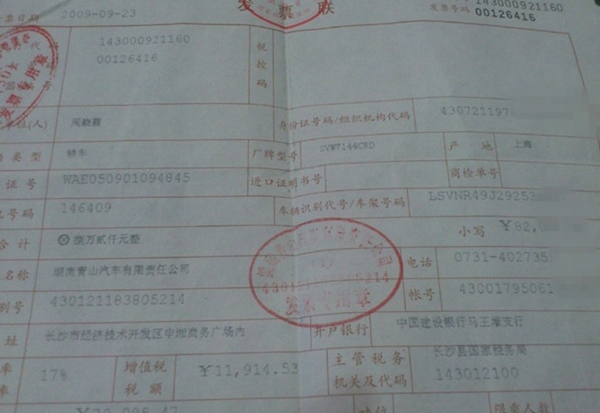 发票联
143000921160
开票日期 2009-09-23 发票号码 00126416
143000921160
00126416
税控码
单位(人) 身份证号码/组织机构代码 430721197
类型 轿车 厂牌型号 SVW7144CRD 产地 上海
证号 WAE050901094845 进口证明书号 商检单号
号码 146409 车辆识别代号/车架号码 LSVNR49J29253
合计 ⊗捌万贰仟元整 小写 ￥82,
名称 湖南青山汽车有限责任公司 电话 0731-402735
别号 430121183805214 帐号 43001795061
址 长沙市经济技术开发区中湘商务广场内 开户银行 中国建设银行马王堆支行
率 17% 增值税税额 ￥11,914.53 主管税务机关及代码 长沙县国家税务局 143012100
发票专用章